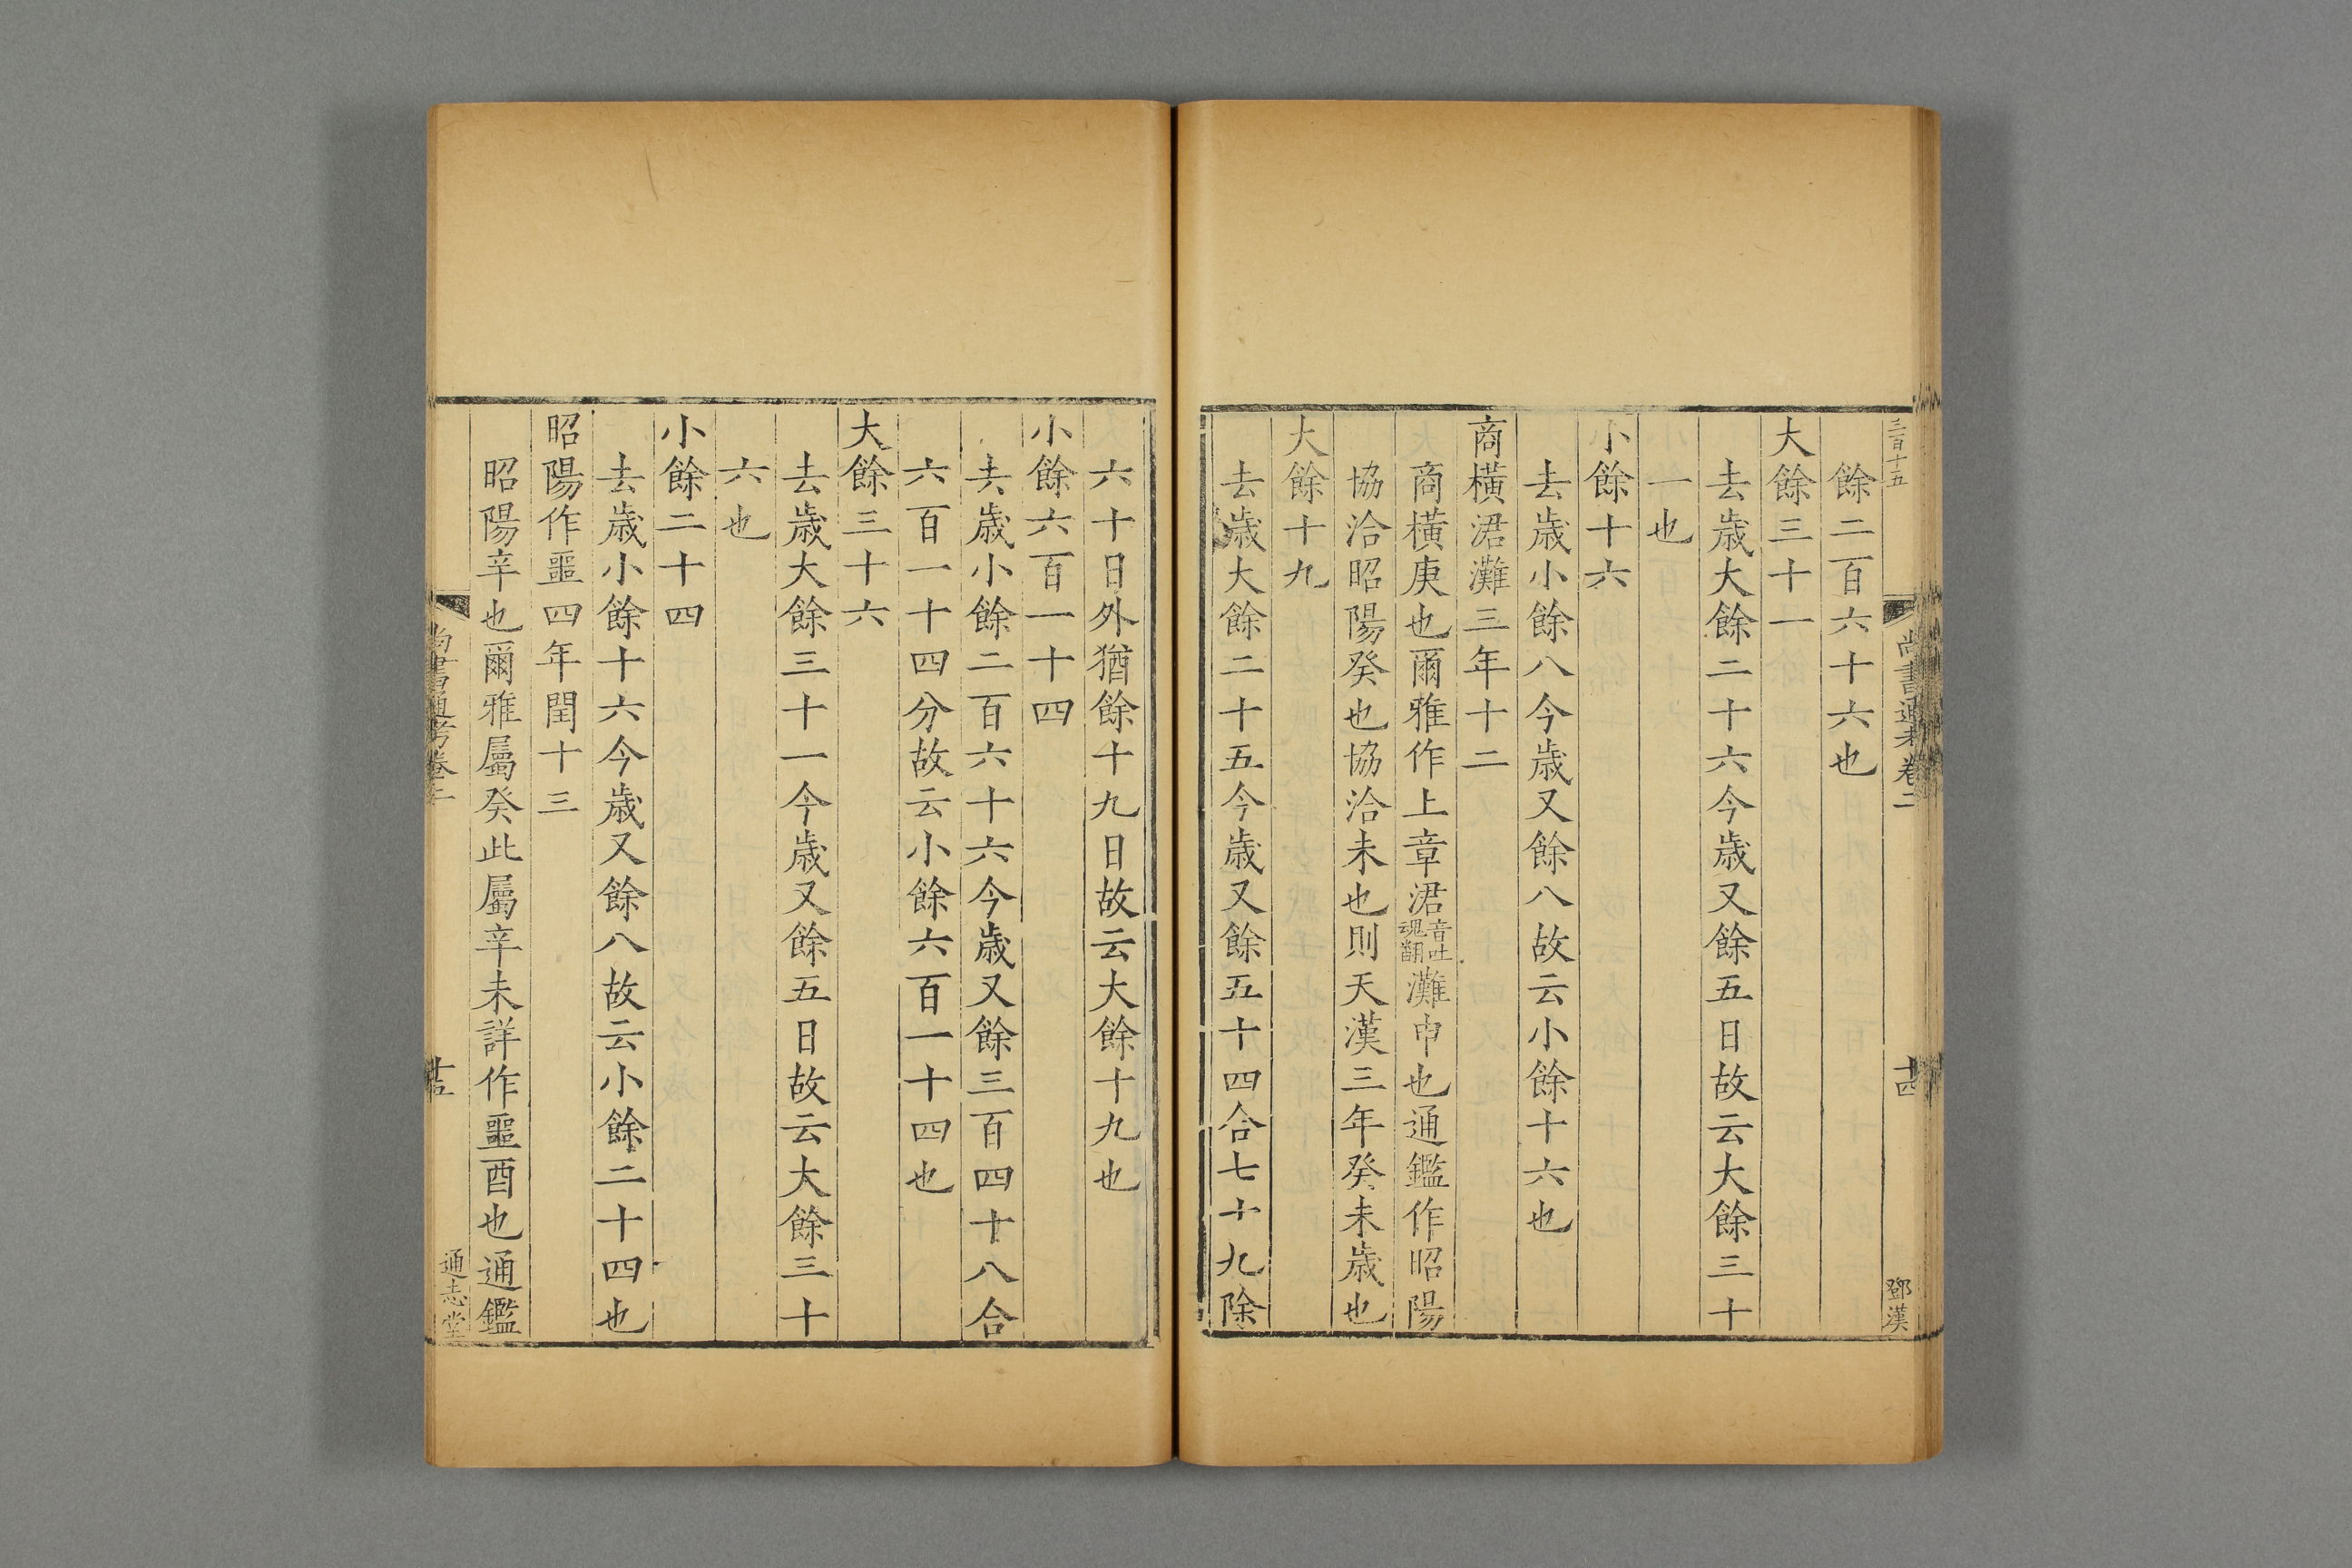 三百十五
尚書通考卷二
十四
鄧漢
餘二百六十六也
大餘三十一
去歲大餘二十六今歲又餘五日故云大餘三十
一也
小餘十六
去歲小餘八今歲又餘八故云小餘十六也
商橫涒灘三年十二
商橫庚也爾雅作上章涒音吐魂翻灘申也通鑑作昭陽
協洽昭陽癸也協洽未也則天漢三年癸未歲也
大餘十九
去歲大餘二十五今歲又餘五十四合七十九除
六十日外猶餘十九日故云大餘十九也
小餘六百一十四
去歲小餘二百六十六今歲又餘三百四十八合
六百一十四分故云小餘六百一十四也
大餘三十六
去歲大餘三十一今歲又餘五日故云大餘三十
六也
小餘二十四
去歲小餘十六今歲又餘八故云小餘二十四也
昭陽作噩四年閏十三
昭陽辛也爾雅屬癸此屬辛未詳作噩酉也通鑑
尚書通考卷二
十五
通志堂